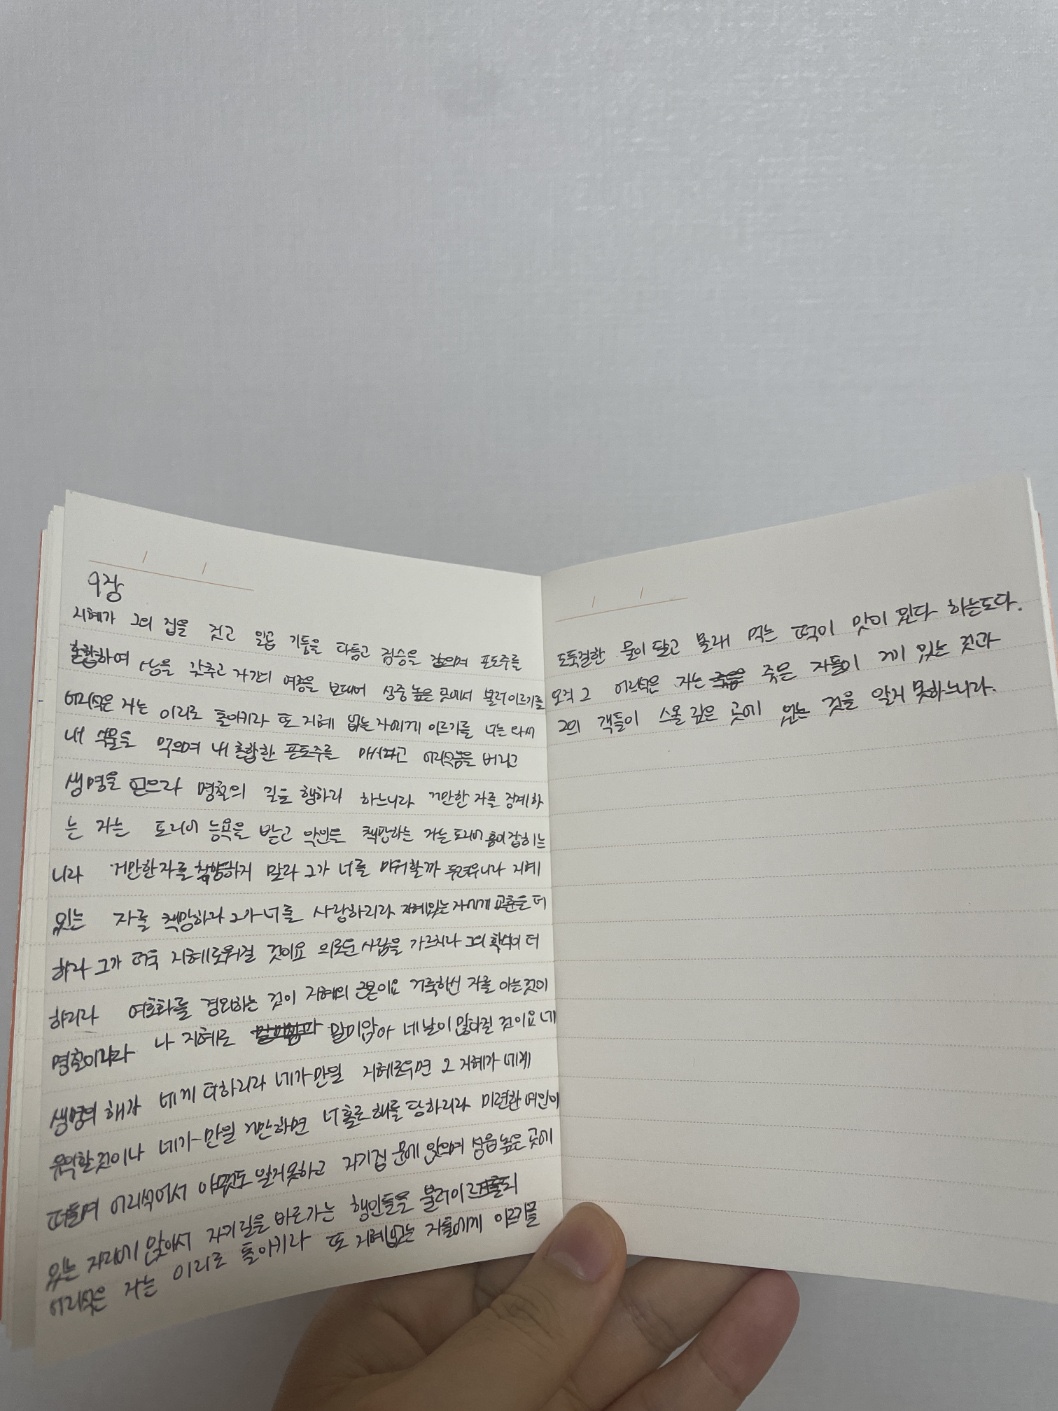 9장
지혜가 그의 집을 짓고 일곱 기둥을 다듬고 짐승을 잡으며 포도주를
혼합하여 상을 갖추고 자기의 여종을 보내어 성중 높은 곳에서 불러이르기를
어리석은 자는 이리로 돌이키라 또 지혜 없는 자에게 이르기를 너는 와서
내 식물을 먹으며 내 혼합한 포도주를 마시라고 어리석음을 버리고
생명을 얻으라 명철의 길을 행하라 하느니라 거만한 자를 징계하
는 자는 도리어 능욕을 받고 악인을 책망하는 자는 도리어 흠이 잡히느
니라 거만한 자를 책망하지 말라 그가 너를 미워할까 두려우니라 지혜
있는 자를 책망하라 그가 너를 사랑하리라 지혜있는 자에게 교훈을 더
하라 그가 더욱 지혜로워질 것이요 의로운 사람을 가르치라 그의 학식이 더
하리라 여호와를 경외하는 것이 지혜의 근본이요 거룩하신 자를 아는것이
명철이니라 나 지혜로 말미암아 네 날이 많아질 것이요 네
생명의 해가 네게 더하리라 네가 만일 지혜로우면 그 지혜가 네게
유익할것이나 네가 만일 거만하면 너 홀로 해를 당하리라 미련한 여인이
떠들며 어리석어서 아무것도 알지못하고 자기집 문에 앉으며 성읍 높은 곳에
있는 자리에 앉아서 자기 길을 바로가는 행인들을 불러이르되
어리석은 자는 이리로 돌이키라 또 지혜없는 자들에게 이르기를
도둑질한 물이 달고 몰래 먹는 떡이 맛이 있다 하는도다.
오직 그 어리석은 자는 죽은 자들이 거기 있는 것과
그의 객들이 스올 깊은 곳에 있는 것을 알지 못하느니라.